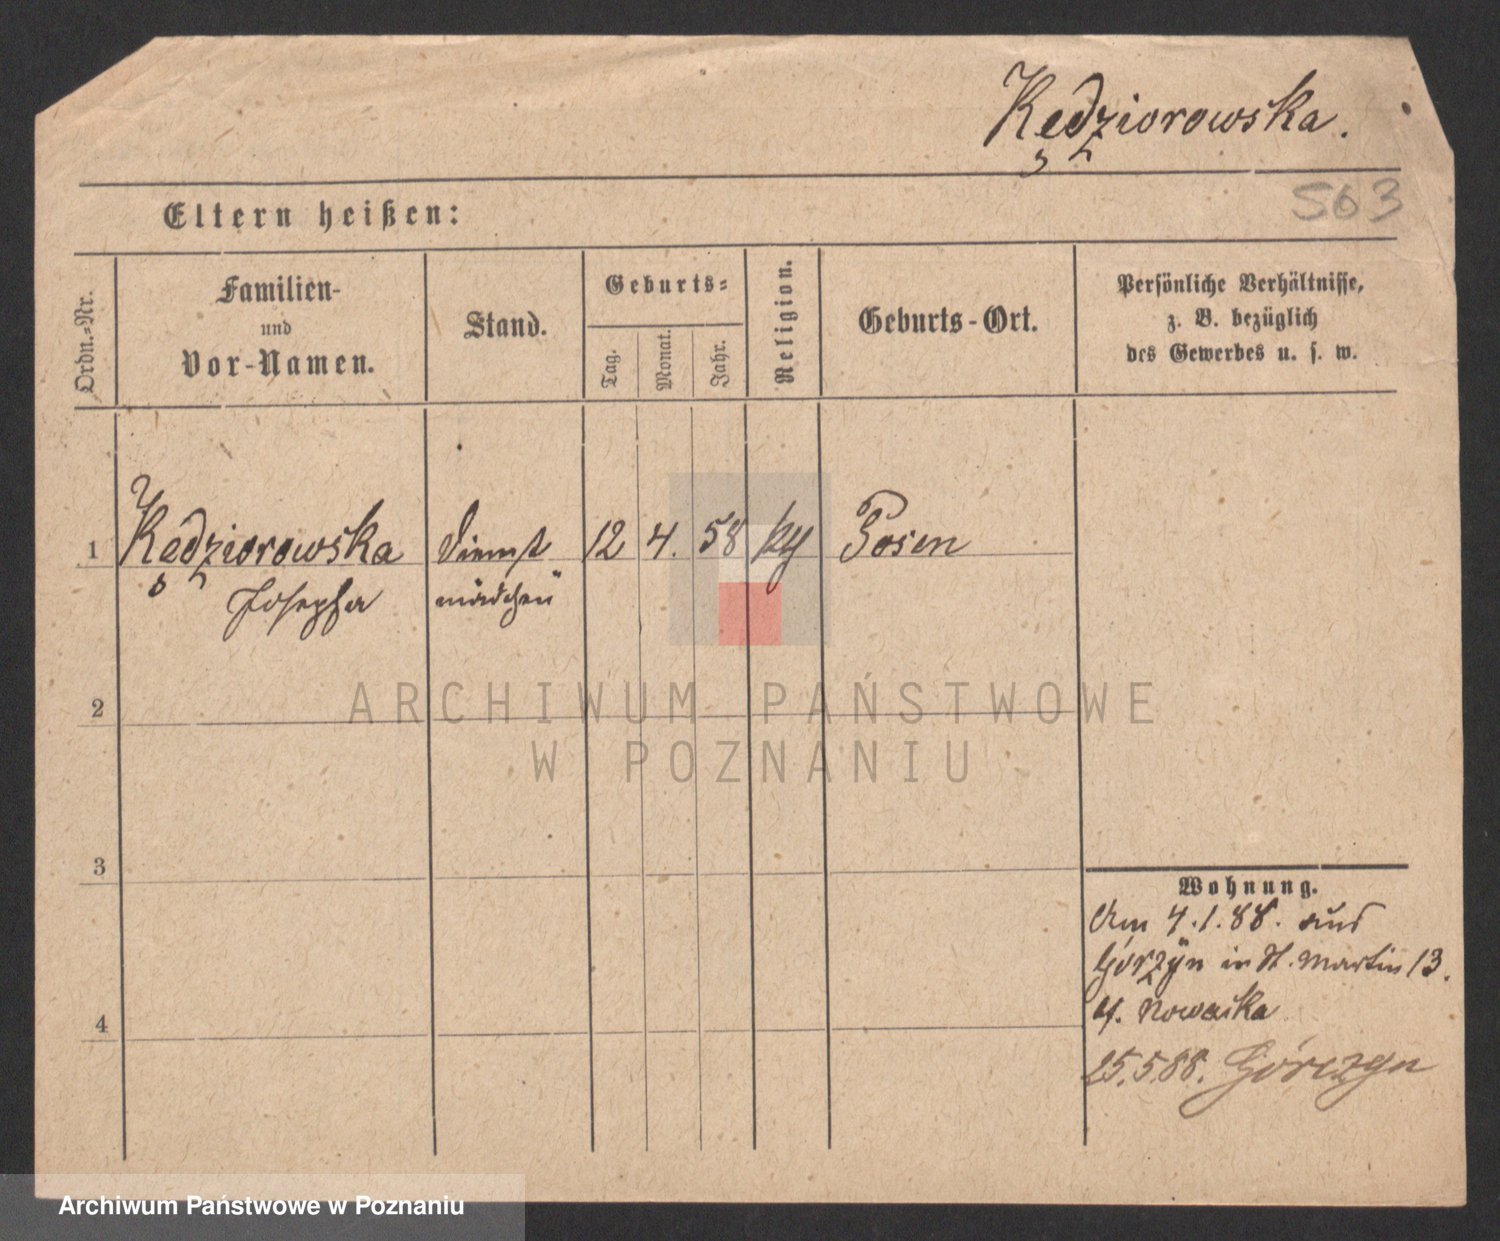 Kędziorowska.
563
Eltern heißen:
Ordn.-Nr.
Familien-
und
Vor-Namen.
Stand.
Geburts-
Tag.
Monat.
Jahr.
Religion.
Geburts-Ort.
Persönliche Verhältnisse,
z. B. bezüglich
des Gewerbes u. s. w.
1 Kędziorowska Dienst 12 4. 58 Posen
Josepha mädchen
2
3
4
Wohnung.
Am 4.1.88. aus
Górzyn in St. Martin 13.
Nowacka
25.5.88. Górczyn
ARCHIWUM PAŃSTWOWE
W POZNANIU
Archiwum Państwowe w Poznaniu